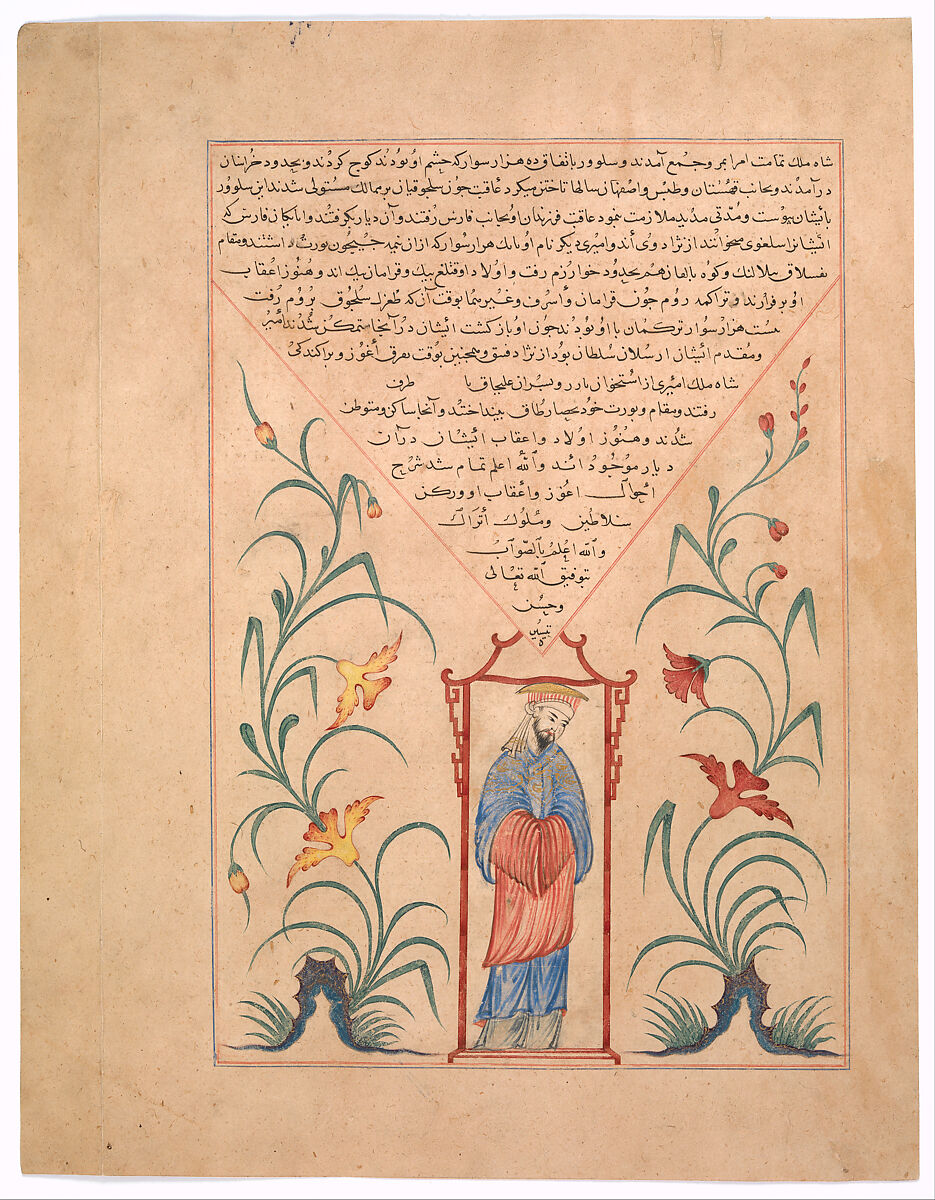 شاه ملک تمامت امرا بمرو جمع آمدند و سلوور باتفاق ده هزار سوار که حشم او بودند کوچ کردند و بحدود خراسان
درآمدند و بجانب قهستان و طبس و اصفهان سالها تاختن میکرد عاقبت چون سلجوقیان بر ممالک مستولی شدند ابن سلوور
بایشان پیوست و مدتی مدید ملازمت نمود عاقبت فرزندان او بجانب فارس رفتند و آن دیار بگرفتند و اتابکان فارس که
ایشانرا سلغوی میخوانند از نژاد وی اند و امیری دیکر نام او با یک هزار سوار که از آن جیحون یورت داشتند و مقام
هم بحدود خوارزم رفت و اولاد او قتلغ بیک و قرامان بیک اند و هنوز اعقاب
او برقرارند و تراکمه روم چون قرامان و اسرف و غیرهما بوقت آن که طغرل سلجوق بروم رفت
بیست هزار سوار ترکمان با او بودند چون او بازگشت ایشان در آنجا متمکن شدند امیر
و مقدم ایشان ارسلان سلطان بود از نژاد و همچنین بوقت تفرق اغوز و پراکندکی
شاه ملک امیری از استخوان با در و پسران علیجاق با طرف
رفتند و مقام و یورت خود بحصار طاق بینداختند و آنجا ساکن و متوطن
شدند و هنوز اولاد و اعقاب ایشان در آن
دیار موجود اند والله اعلم تمام شد شرح
احوال اغوز و اعقاب او و ذکر
سلاطین و ملوک اتراک
والله اعلم بالصواب
بتوفیق الله تعالی
و حسن
تیسیره